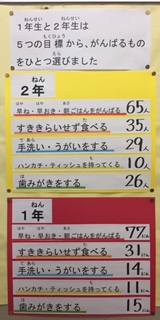 1年生と2年生は
5つの目標から、がんばるもの
をひとつ選びました
2年
早ね・早おき・朝ごはんをがんばる 65人
すききらいせず食べる 35人
手洗い・うがいをする 29人
ハンカチ・ティッシュを持ってくる 10人
歯みがきをする 26人
1年
早ね・早おき・朝ごはんをがんばる 77にん
すききらいせず食べる 31にん
手洗い・うがいをする 14にん
ハンカチ・ティッシュを持ってくる 11にん
歯みがきをする 15にん